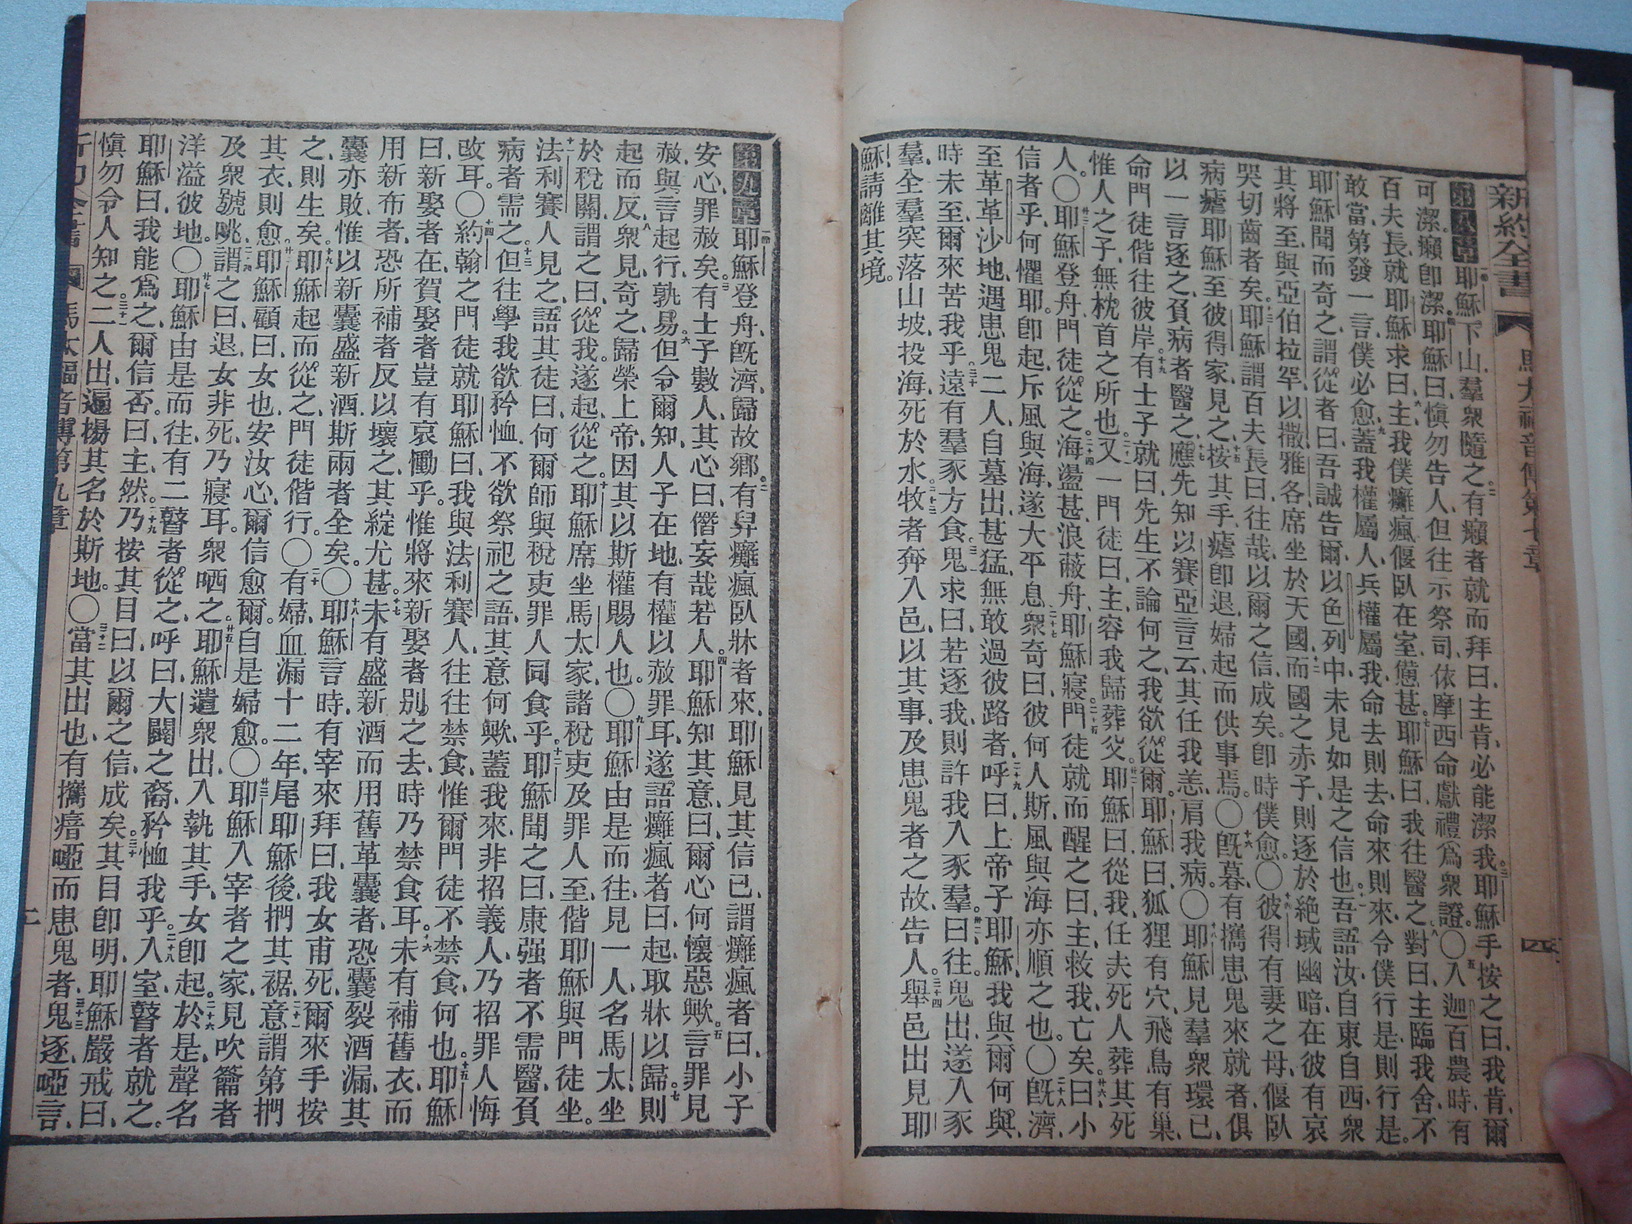 新約全書 馬太福音傳第七章 四
第八章 耶穌下山、羣衆隨之、有癩者就而拜曰、主肯、必能潔我、耶穌手按之曰、我肯、爾
可潔、癩卽潔、耶穌曰、愼勿告人、但往示祭司、依摩西命獻禮爲衆證。〇入迦百農時、有
百夫長、就耶穌求曰、主、我僕癱瘋、偃臥在室、憊甚、耶穌曰、我往醫之、對曰、主臨我舍、不
敢當、第發一言、僕必愈、蓋我權屬人、兵權屬我、命去則去、命來則來、令僕行是、則行是。
耶穌聞而奇之、謂從者曰、吾誠告爾、以色列中、未見如是之信也、吾語汝、自東自西、衆
其將至、與亞伯拉罕、以撒、雅各、席坐於天國、而國之赤子、則逐於絶域幽暗、在彼有哀
哭切齒者矣、耶穌謂百夫長曰、往哉、以爾之信成矣、卽時僕愈。〇彼得有妻之母、偃臥
病瘧、耶穌至彼得家見之、按其手、瘧卽退、婦起而供事焉〇旣暮、有攜患鬼來就者、俱
以一言逐之、負病者醫之、應先知以賽亞言云、其任我恙、肩我病、〇耶穌見羣衆環已、
命門徒偕往彼岸、有士子就曰、先生不論何之、我欲從爾、耶穌曰、狐狸有穴、飛鳥有巢、
惟人之子、無枕首之所也、又一門徒曰、主容我歸葬父、耶穌曰、從我、任夫死人葬其死
人。〇耶穌登舟、門徒從之、海盪甚、浪蔽舟、耶穌寢、門徒就而醒之曰、主救我、亡矣、曰、小
信者乎、何懼耶、卽起、斥風與海、遂大平息、衆奇曰、彼何人斯、風與海亦順之也。〇旣濟、
至革革沙地、遇患鬼二人、自墓出、甚猛、無敢過彼路者、呼曰、上帝子耶穌、我與爾何與、
時未至、爾來苦我乎、遠有羣豕方食、鬼求曰、若逐我、則許我入豕羣、曰、往、鬼出、遂入豕
羣、全羣突落山坡、投海、死於水、牧者奔入邑、以其事、及患鬼者之故、告人、舉邑出見耶
穌、請離其境。
第九章 耶穌登舟、旣濟、歸故鄉、有舁癱瘋臥牀者來、耶穌見其信已、謂癱瘋者曰、小子
安心、罪赦矣、有士子數人、其心曰、僭妄哉若人、耶穌知其意曰、爾心何懷惡歟、言罪見
赦、與言起行、孰易、但令爾知人子在地、有權以赦罪耳、遂語癱瘋者曰、起、取牀以歸、則
起而反、衆見奇之、歸榮上帝、因其以斯權賜人也、〇耶穌由是而往、見一人名馬太、坐
於稅關、謂之曰、從我、遂起從之、耶穌席坐馬太家、諸稅吏及罪人至、偕耶穌與門徒坐。
法利賽人見之、語其徒曰、何爾師與稅吏罪人同食乎、耶穌聞之曰、康强者不需醫、負
病者需之、但往學我欲矜恤、不欲祭祀之語、其意何歟、蓋我來、非招義人、乃招罪人悔
改耳。〇約翰之門徒就耶穌曰、我與法利賽人、往往禁食、惟爾門徒不禁食、何也、耶穌
曰、新娶者在、賀娶者豈有哀慟乎、惟將來新娶者別之去、時乃禁食耳、未有補舊衣、而
用新布者、恐所補者反以壞之、其綻尤甚、未有盛新酒、而用舊革囊者、恐囊裂酒漏、其
囊亦敗、惟以新囊盛新酒、斯兩者全矣。〇耶穌言時、有宰來拜曰、我女甫死、爾來手按
之、則生矣、耶穌起而從之、門徒偕行。〇有婦、血漏十二年、尾耶穌後、捫其裾、意謂第捫
其衣、則愈、耶穌顧曰、女也安汝心、爾信愈爾、自是婦愈。〇耶穌入宰者之家、見吹籥者
及衆號咷、謂之曰、退、女非死、乃寢耳、衆哂之、耶穌遣衆出、入執其手、女卽起、於是聲名
洋溢彼地。〇耶穌由是而往、有二瞽者從之、呼曰、大闢之裔、矜恤我乎、入室、瞽者就之、
耶穌曰、我能爲之、爾信否、曰、主、然、乃按其目曰、以爾之信成矣、其目卽明、耶穌嚴戒曰、
愼勿令人知之、二人出、遍揚其名於斯地。〇當其出也、有攜瘖啞而患鬼者、鬼逐、啞言、
新約全書 馬太福音傳第九章